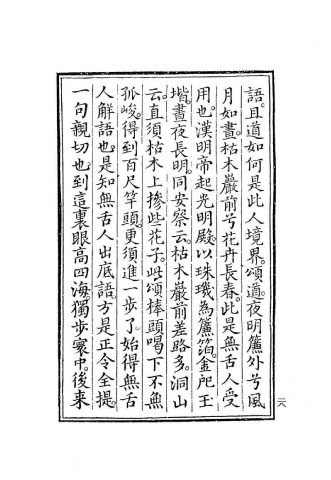 語且道如何是此人境界。頌道。夜明簾外兮風
月如晝。枯木巖前兮花卉長春。此是無舌人受
用也。漢明帝起光明殿。以珠璣為簾箔。金戺玉
堦。晝夜長明。同安察云。枯木巖前差路多。洞山
云。直須枯木上摻些花子。此頌棒頭喝下不無
孤峻。得到百尺竿頭。更須進一步了。始得無舌
人解語也。是知無舌人出底語。方是正令全提。
一句親切也。到這裏眼高四海。獨步寰中。後來
二八